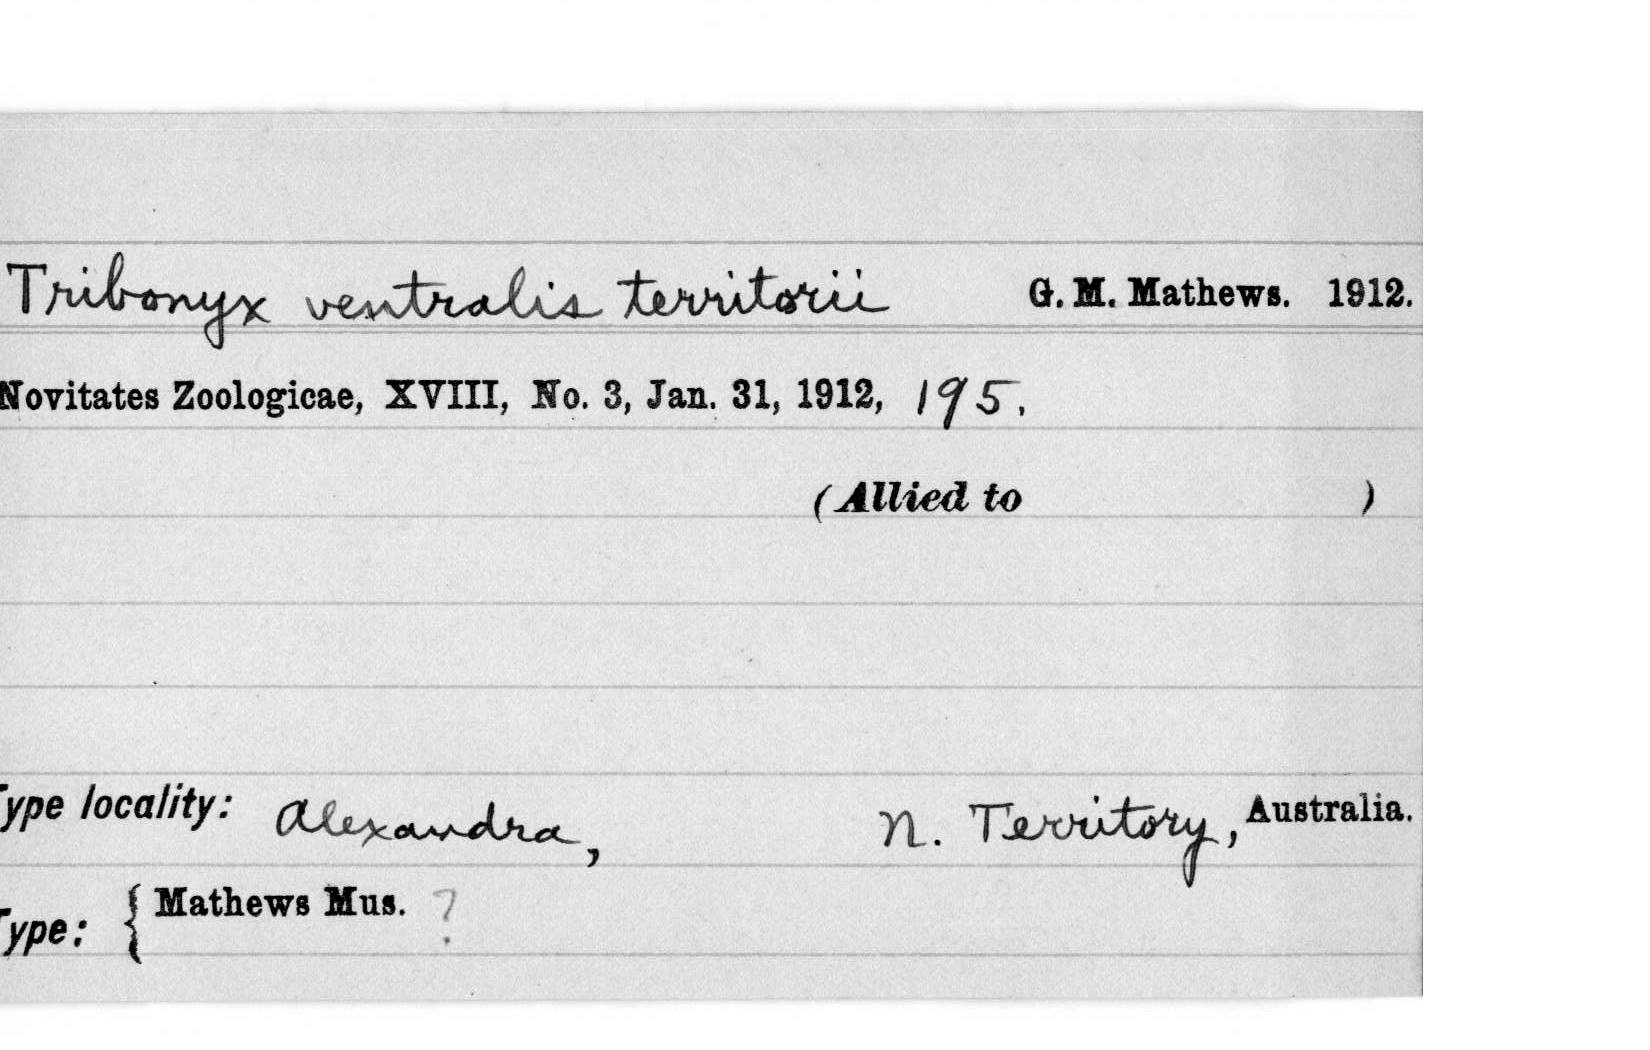 Tribonyx ventralis territorii G. M. Mathews. 1912.
Novitates Zoologicae, XVIII, No. 3, Jan. 31, 1912, 195.
(Allied to )
Type locality: Alexandra, N. Territory, Australia.
Type: { Mathews Mus. ?